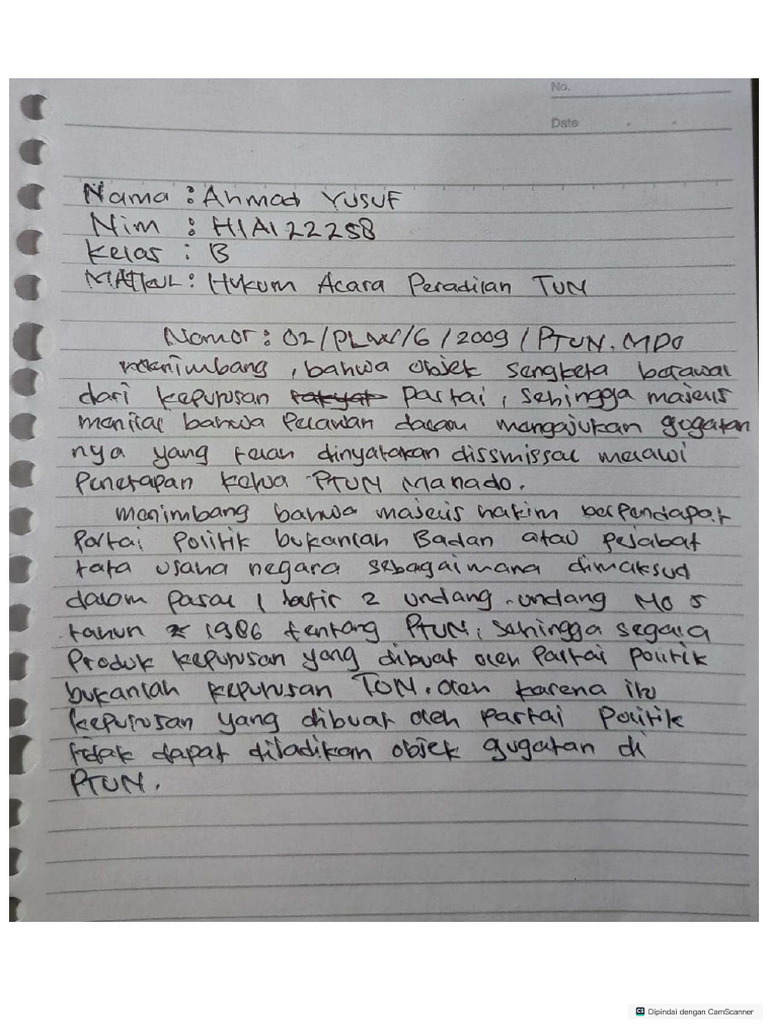 No.
Date
Nama : Ahmad YUSUF
Nim : H1A122258
Kelas : B
MATKUL : Hukum Acara Peradilan TUN
Nomor : 02/PLW/6/2009/PTUN.MDO
menimbang, bahwa objek sengketa berawal
dari keputusan rakyat Partai, sehingga majelis
menilai bahwa Pelawan dalam mengajukan gugatan
nya yang telah dinyatakan dissmissal melalui
Penetapan ketua PTUN Manado.
menimbang bahwa majelis hakim berpendapat
Partai Politik bukanlah Badan atau pejabat
tata usaha negara sebagaimana dimaksud
dalam pasal 1 butir 2 undang-undang NO 5
tahun 1986 tentang PTUN, sehingga segala
Produk keputusan yang dibuat oleh Partai politik
bukanlah keputusan TUN. oleh karena itu
keputusan yang dibuat oleh partai Politik
tidak dapat diladikan objek gugatan di
PTUN.
CS Dipindai dengan CamScanner